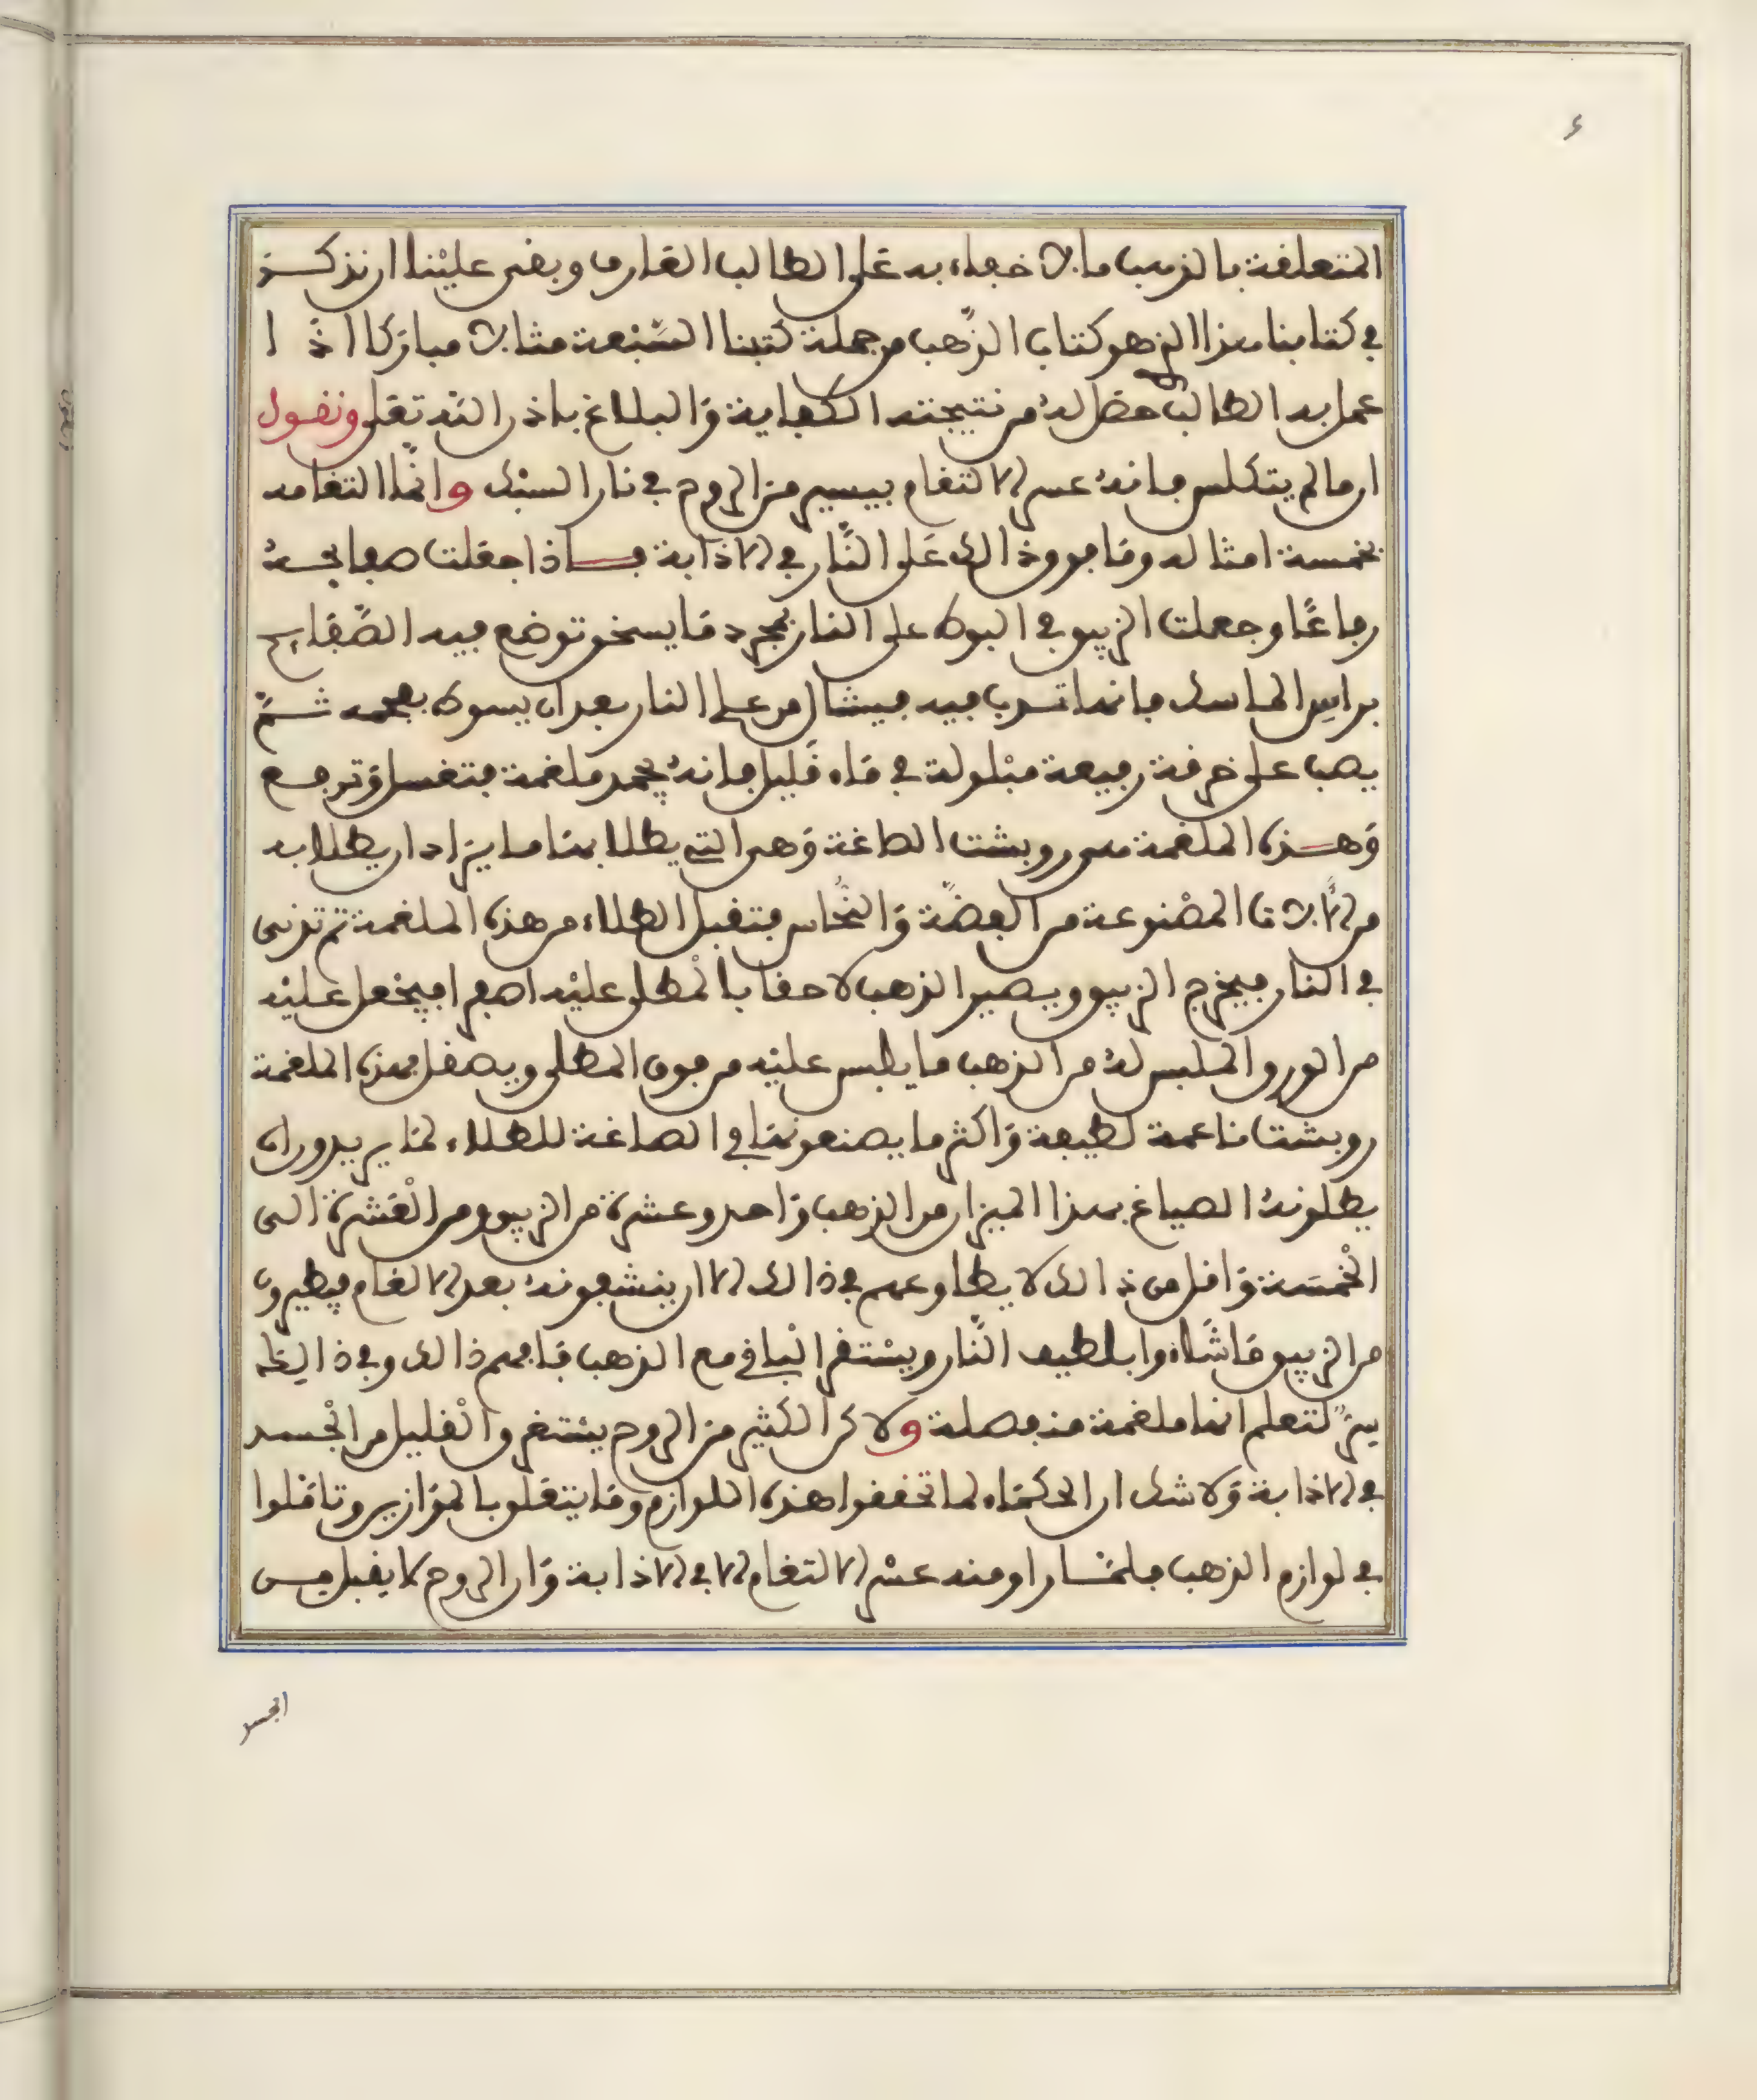 المتعلقة بالذهب ما لا خفاء به على الطالب العارف وبقى علينا ان نذكر
في كتابنا هذا الذي هو كتاب الذهب من جملة كتبنا السبعة مثالا مباركا اذا
عمل به الطالب حصل له من نتيجته الكفاية والبلاغ باذن الله تعلى ونقول
ان ما لم يتكلس فانه عسر الالتغام بيسير من الروح في نار السبك وانما التغامه
بخمسة امثاله وما فوق ذالك على النار في الاذابة فاذا جعلت صفايحه
رقاعا وجعلت الزيبق في البوط على النار بمجرد ما يسخن توضع فيه الصفايح
براس الماسك فانها تذوب فيه فيشال من على النار بعد ان يسوط بفحمه ثم
يصب على خرقة رفيعة مبلولة في ماء قليل فانه يجمد ملغمة فتغسل وترفع
وهذه الملغمة هي روبشت الصاغة وهي التي يطلا بها ما يراد ان يطلا به
من الالات المصنوعة من الفضة والنحاس فتقبل الطلاء من هذه الملغمة ثم تدنى
في النار فيخرج الزيبق ويصير الذهب لاحقا بالمطلى عليه اصفرا فيجعل عليه
من الورق الملبس له من الذهب ما يلبس عليه من فوق المطلى ويصقل بهذه الملغمة
روبشت ناعمة لطيفة واكثر ما يصنعونها في الصاغة للطلاء لما يريدون ان
يطلونه الصياغ بهذا الميزان من الذهب واحد وعشرة من الزيبق ومن العشرة الى
الخمسة واقل من ذالك لا يطاوعهم في ذالك الا ان ينشفونه بعد الالغام فيطيرون
من الزيبق ما شاءوا بلطيف النار ويستقر الباقي مع الذهب فافهم ذالك وفي ذالك
سر لتعلم انها ملغمة منفصلة ولاكن الكثير من الروح يستغرق القليل من الجسد
في الاذابة ولا شك ان الحكماء لما تحققوا هذه اللوازم وما يتعلق بالموازين وتاملوا
في لوازم الذهب فلما راو منه عسر الالتغام الا في الاذابة وان الروح لا يقبل من
الجسد